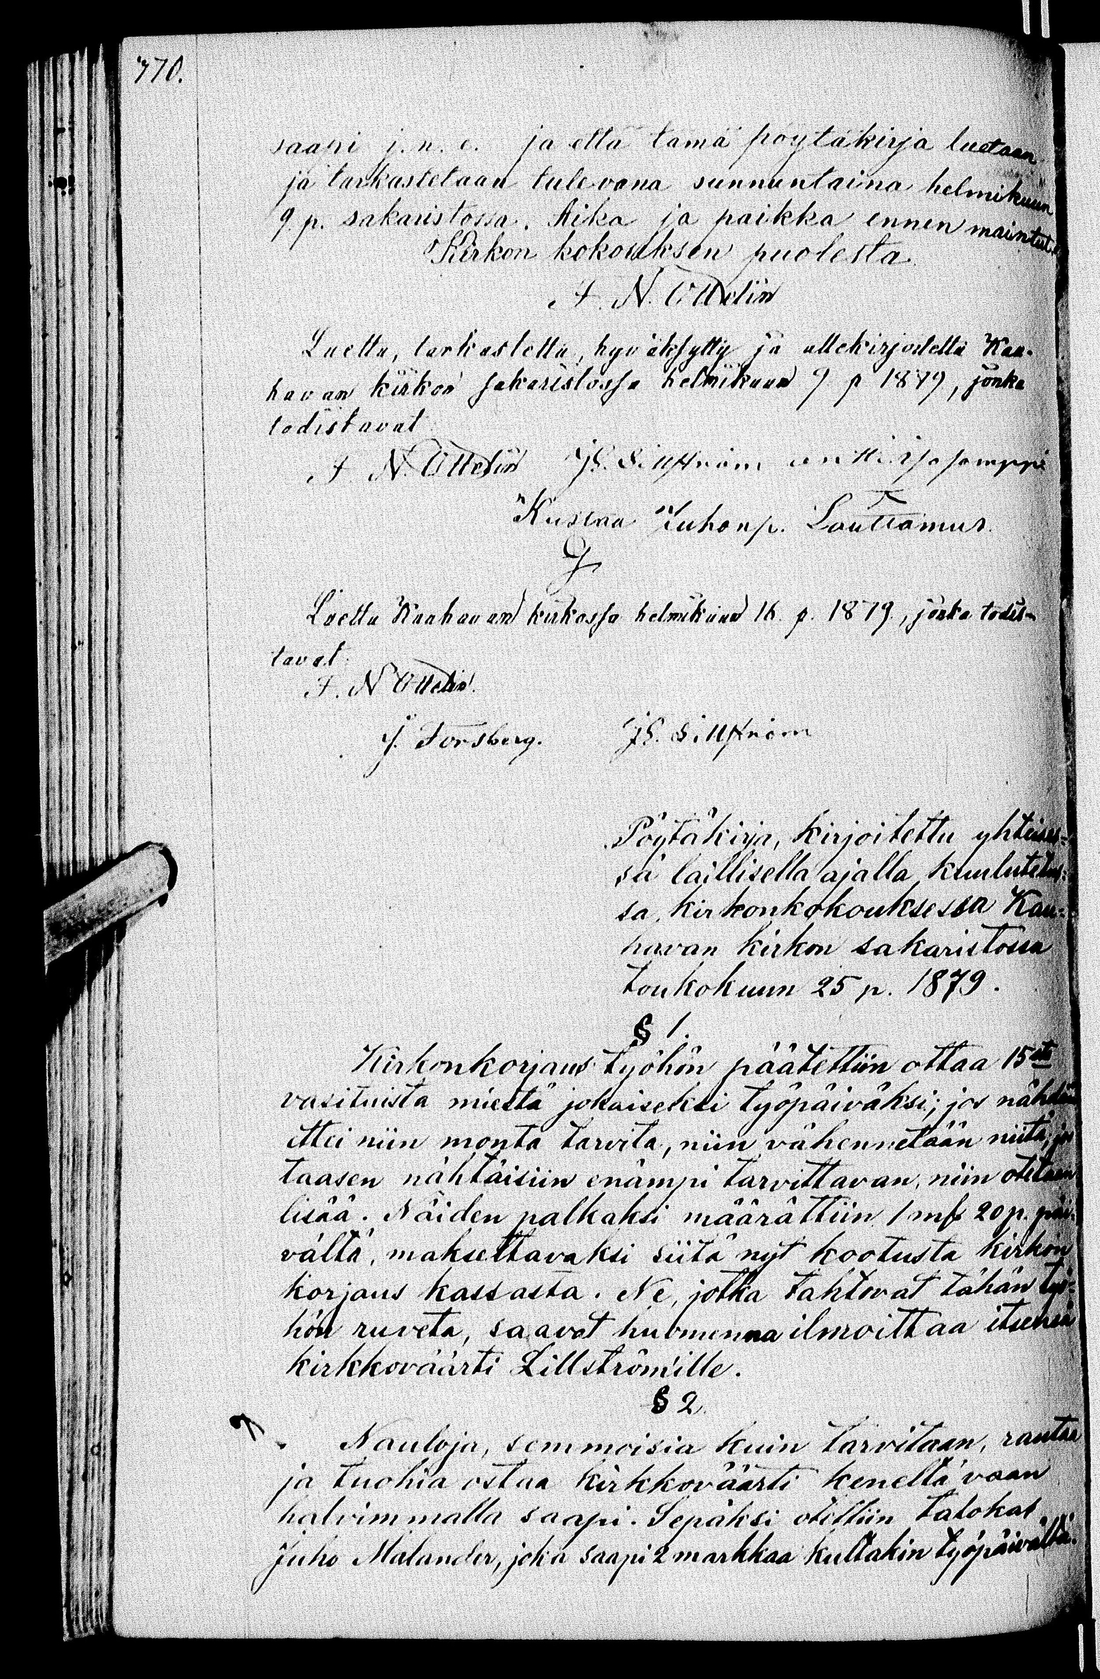 770.
saapi j. n. e. ja että tämä pöytäkirja luetaan
ja tarkastetaan tulevana sunnuntaina helmikuun
9. p. sakaristossa. Aika ja paikka ennen mainitut.
Kirkon kokouksen puolesta
F. N. Ottelin
Luettu, tarkastettu, hyväksytty ja allekirjoitettu Kau-
havan kirkon sakaristossa helmikuun 9 p 1879, jonka
todistavat
F. N. Ottelin JE. Lillström antti isosomppi
Kustaa Juhonp. Lauttamus.
Luettu Kauhavan kirkossa helmikuun 16. p. 1879, jonka todis-
tavat.
F. N Ottelin.
J. Forsberg. JE. Lillström
Pöytäkirja, kirjoitettu yhteises-
sä laillisella ajalla, kuulutetus-
sa, kirkonkokouksessa Kau-
havan kirkon sakaristossa
toukokuun 25 p. 1879.
§ 1.
Kirkonkorjaus työhön päätettiin ottaa 15sta
vasituista miestä jokaiseksi työpäiväksi; jos nähdään
ettei niin monta tarvita, niin vähennetään niitä, jos
taasen nähtäisiin enämpi tarvittavan, niin otetaan
lisää. Näiden palkaksi määrättiin 1 mk 20 p. päi-
vältä, maksettavaksi siitä nyt kootusta kirkon
korjaus kassasta. Ne, jotka tahtovat tähän työ-
hön ruveta, saavat huomenna ilmoittaa itsensä
kirkkoväärti Lillström'ille.
§ 2.
Nauloja, semmoisia kuin tarvitaan, rautaa
ja tuohia ostaa kirkkoväärti keneltä vaan
halvimmalla saapi. Sepäksi otettiin talokas
Juho Malander, joka saapi 2 markkaa kultakin työpäivältä.